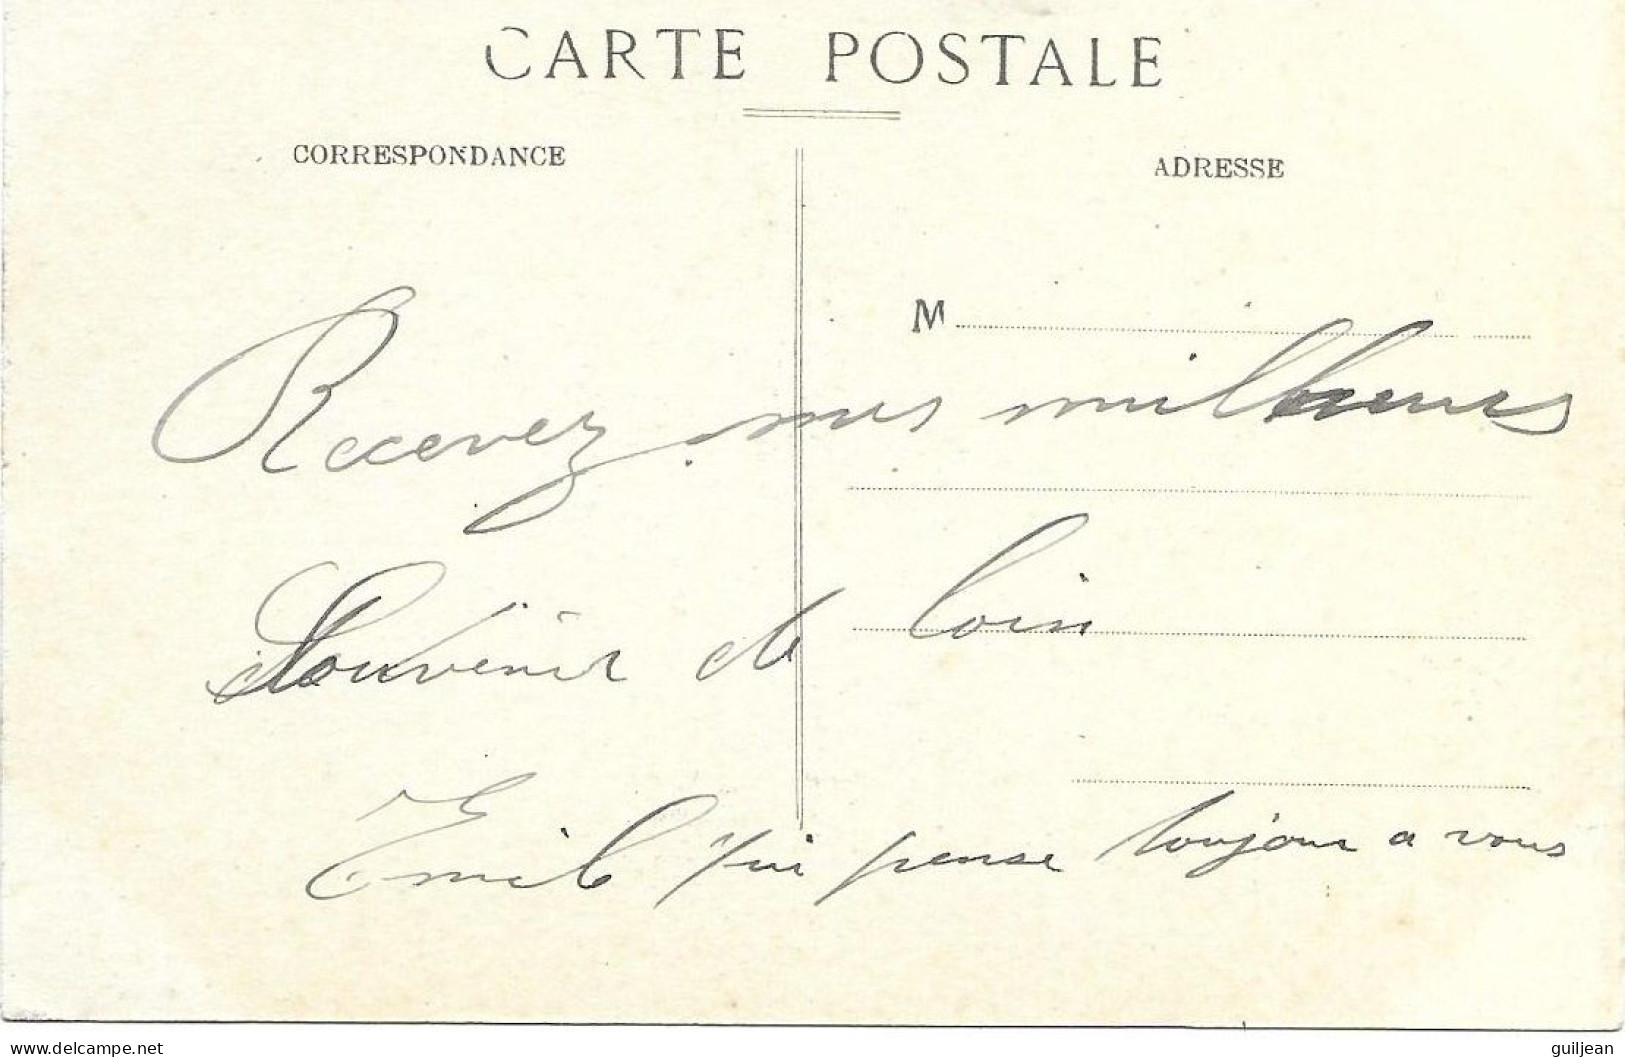 CARTE POSTALE
CORRESPONDANCE
ADRESSE
M
Recevez mes milleurs
Souvenir de loin
Emile qui pense toujour a vous
www.delcampe.net
guiljean